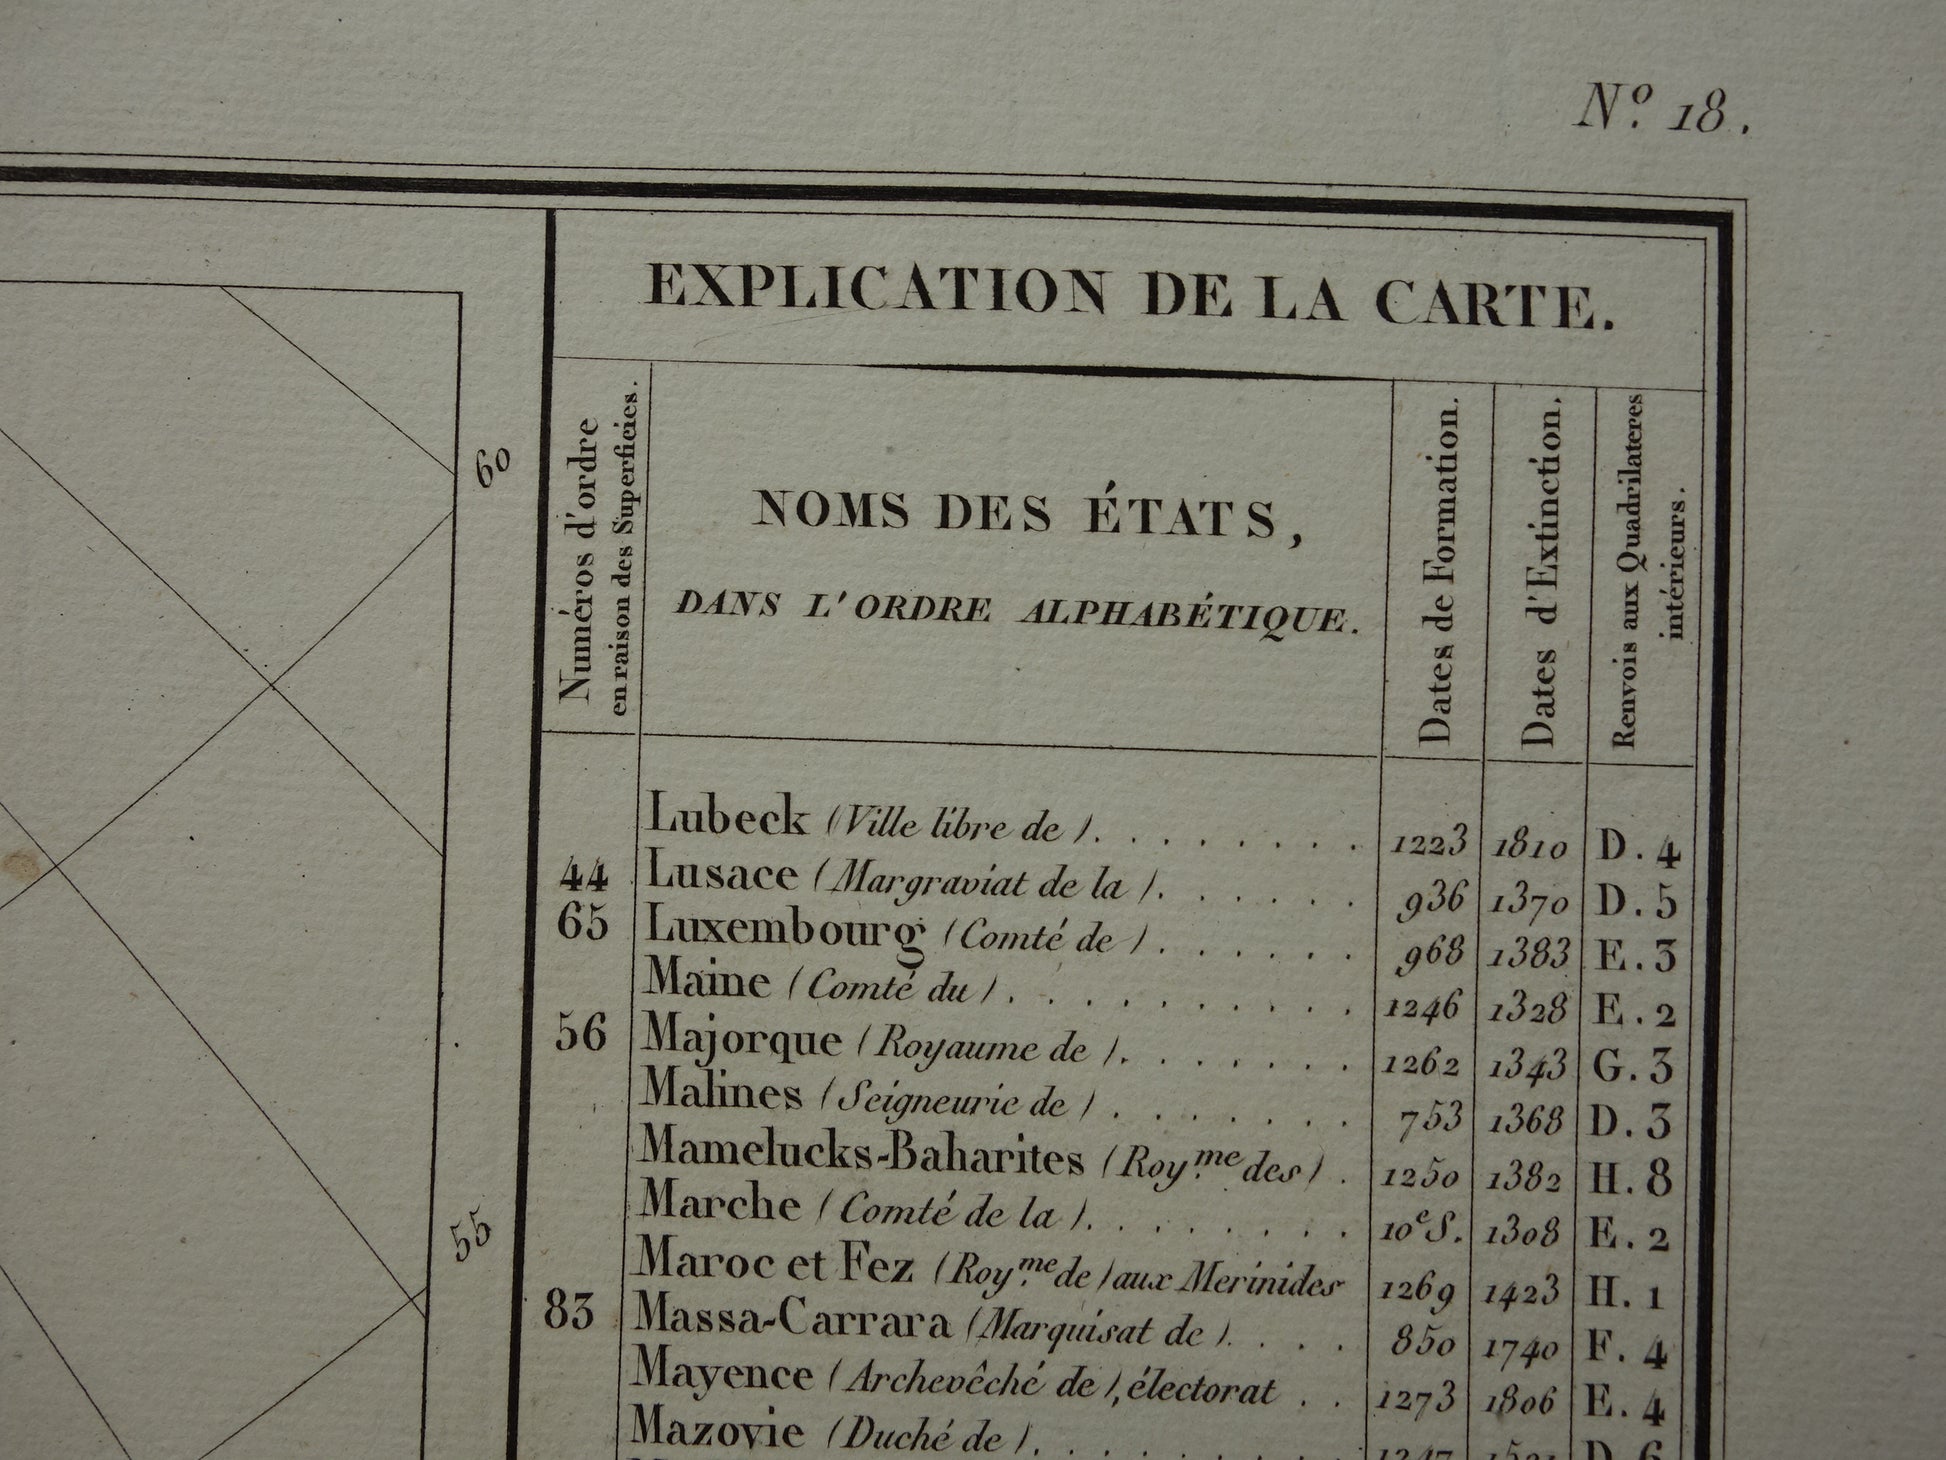 N.º 18.
EXPLICATION DE LA CARTE.
Numéros d'ordre
en raison des Superficies.
NOMS DES ÉTATS,
DANS L'ORDRE ALPHABÉTIQUE.
Dates de Formation.
Dates d'Extinction.
Renvois aux Quadrilateres
intérieurs.
60
55
Lubeck (Ville libre de). . . . . . . . . 1223 1810 D. 4
44 Lusace (Margraviat de la). . . . . . . 936 1370 D. 5
65 Luxembourg (Comté de). . . . . . . 968 1383 E. 3
Maine (Comté du). . . . . . . . . . . 1246 1328 E. 2
56 Majorque (Royaume de). . . . . . . . 1262 1343 G. 3
Malines (Seigneurie de). . . . . . . . 753 1368 D. 3
Mamelucks-Baharites (Roy.me des). 1250 1382 H. 8
Marche (Comté de la). . . . . . . . . 10e S. 1308 E. 2
Maroc et Fez (Roy.me de) aux Merinides 1269 1423 H. 1
83 Massa-Carrara (Marquisat de). . . . 850 1740 F. 4
Mayence (Archevêché de), électorat . . 1273 1806 E. 4
Mazovie (Duché de). . . . . . . . . D. 6